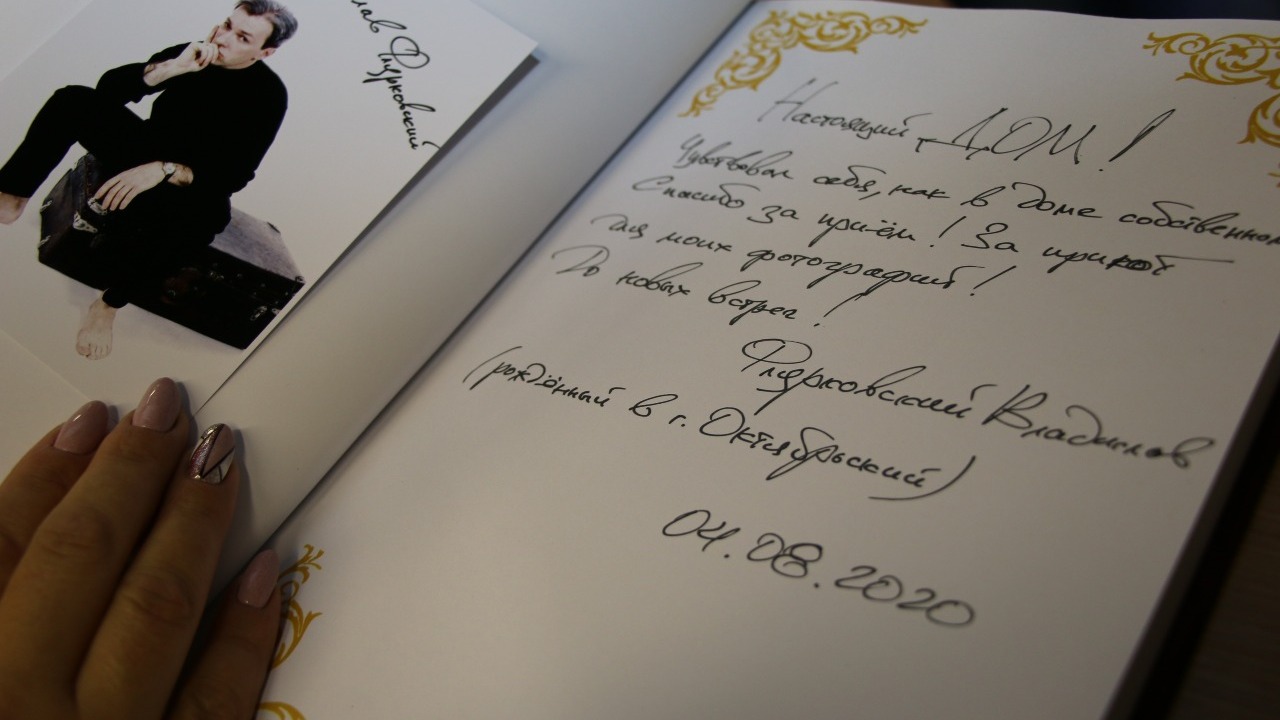 лав Флярковский
Настоящий ДОМ!
Чувствовал себя, как в доме собственном
Спасибо за приём! За приют
для моих фотографий!
До новых встреч!
Флярковский Владислав
(рождённый в г. Октябрьский)
04.08.2020